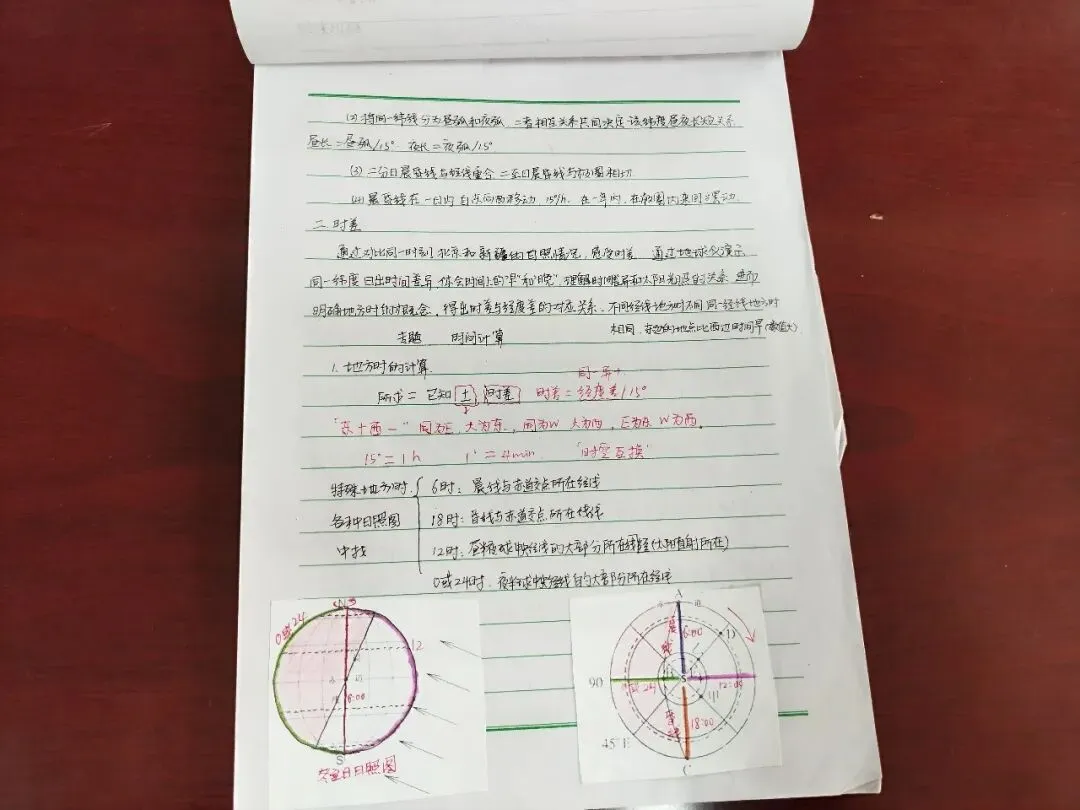 (2) 将同一纬线分为昼弧和夜弧,二者相互关系共同决定该纬度昼夜长短关系
昼长=昼弧/15° 夜长=夜弧/15°
(3) 二分日晨昏线与经线重合 二至日晨昏线与极圈相切
(4) 晨昏线在一日内自东向西移动 15°/h. 在一年内,在极圈内来回摆动
二.时差
通过对比同一时刻北京和新疆的日照情况,感受时差 通过地球仪演示
同一纬度日出时间差异,体会时间上的"早"和"晚",理解时间差异和太阳光照的关系 进而
明确地方时的概念,得出时差与经度差的对应关系.不同经线地方时不同 同一经线地方时
相同,东边的地点比西边时间早(数值大)
专题 时间计算
1.地方时的计算
同一异+
所求=已知± 时差 时差=经度差/15°
"东十西一" 同为E,大为东,同为W 大为西,E为东 W为西.
15°=1h 1°=4min "时空互换"
特殊地方时
各种日照图
中找
6时:晨线与赤道交点所在经线
18时:昏线与赤道交点所在经线
12时:昼半球中经线的大部分所在(太阳直射所在)
0或24时:夜半球中经线的大部分所在经线
0或24
12
6:00
S
冬至日日照图
A
晨线
6:00
D
90
0或24
S
12:00
昏线
18:00
45°E
C